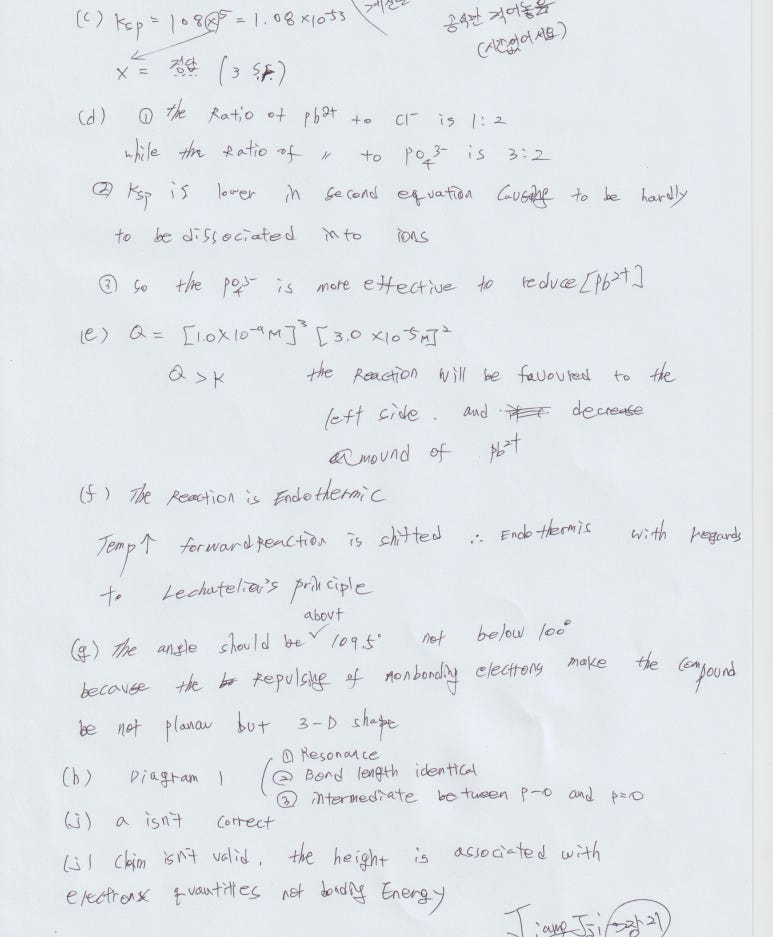 (C) Ksp = 108(x)⁵ = 1.08×10⁵³
공식만 적어놓음
(시간없어서요)
x = 정답 (3 S.F.)
(d) ① the Ratio of pb²⁺ to Cl⁻ is 1:2
while the Ratio of 〃 to PO₄³⁻ is 3:2
② Ksp is lower in second equation Causing to be hardly
to be dissociated into ions
③ So the PO₄³⁻ is more effective to reduce [pb²⁺]
(e) Q = [1.0×10⁻⁹M]³ [3.0×10⁻⁵M]²
Q > K the Reaction will be favoured to the
left side. and decrease
amound of pb²⁺
(f) The Reaction is Endothermic
Temp↑ forward Reaction is shifted ∴ Endothermis with regards
to Lechatelier's principle
about
(g) The angle should be ✓ 109.5° not below 100°
because the Repulsive of nonbonding electrons make the compound
be not planar but 3-D shape
① Resonance
(h) Diagram 1 ② Bond length identical
③ intermediate between p-o and p=o
(i) a isn't correct
(j) Claim isn't valid, the height is associated with
electrons quantities not bonding Energy